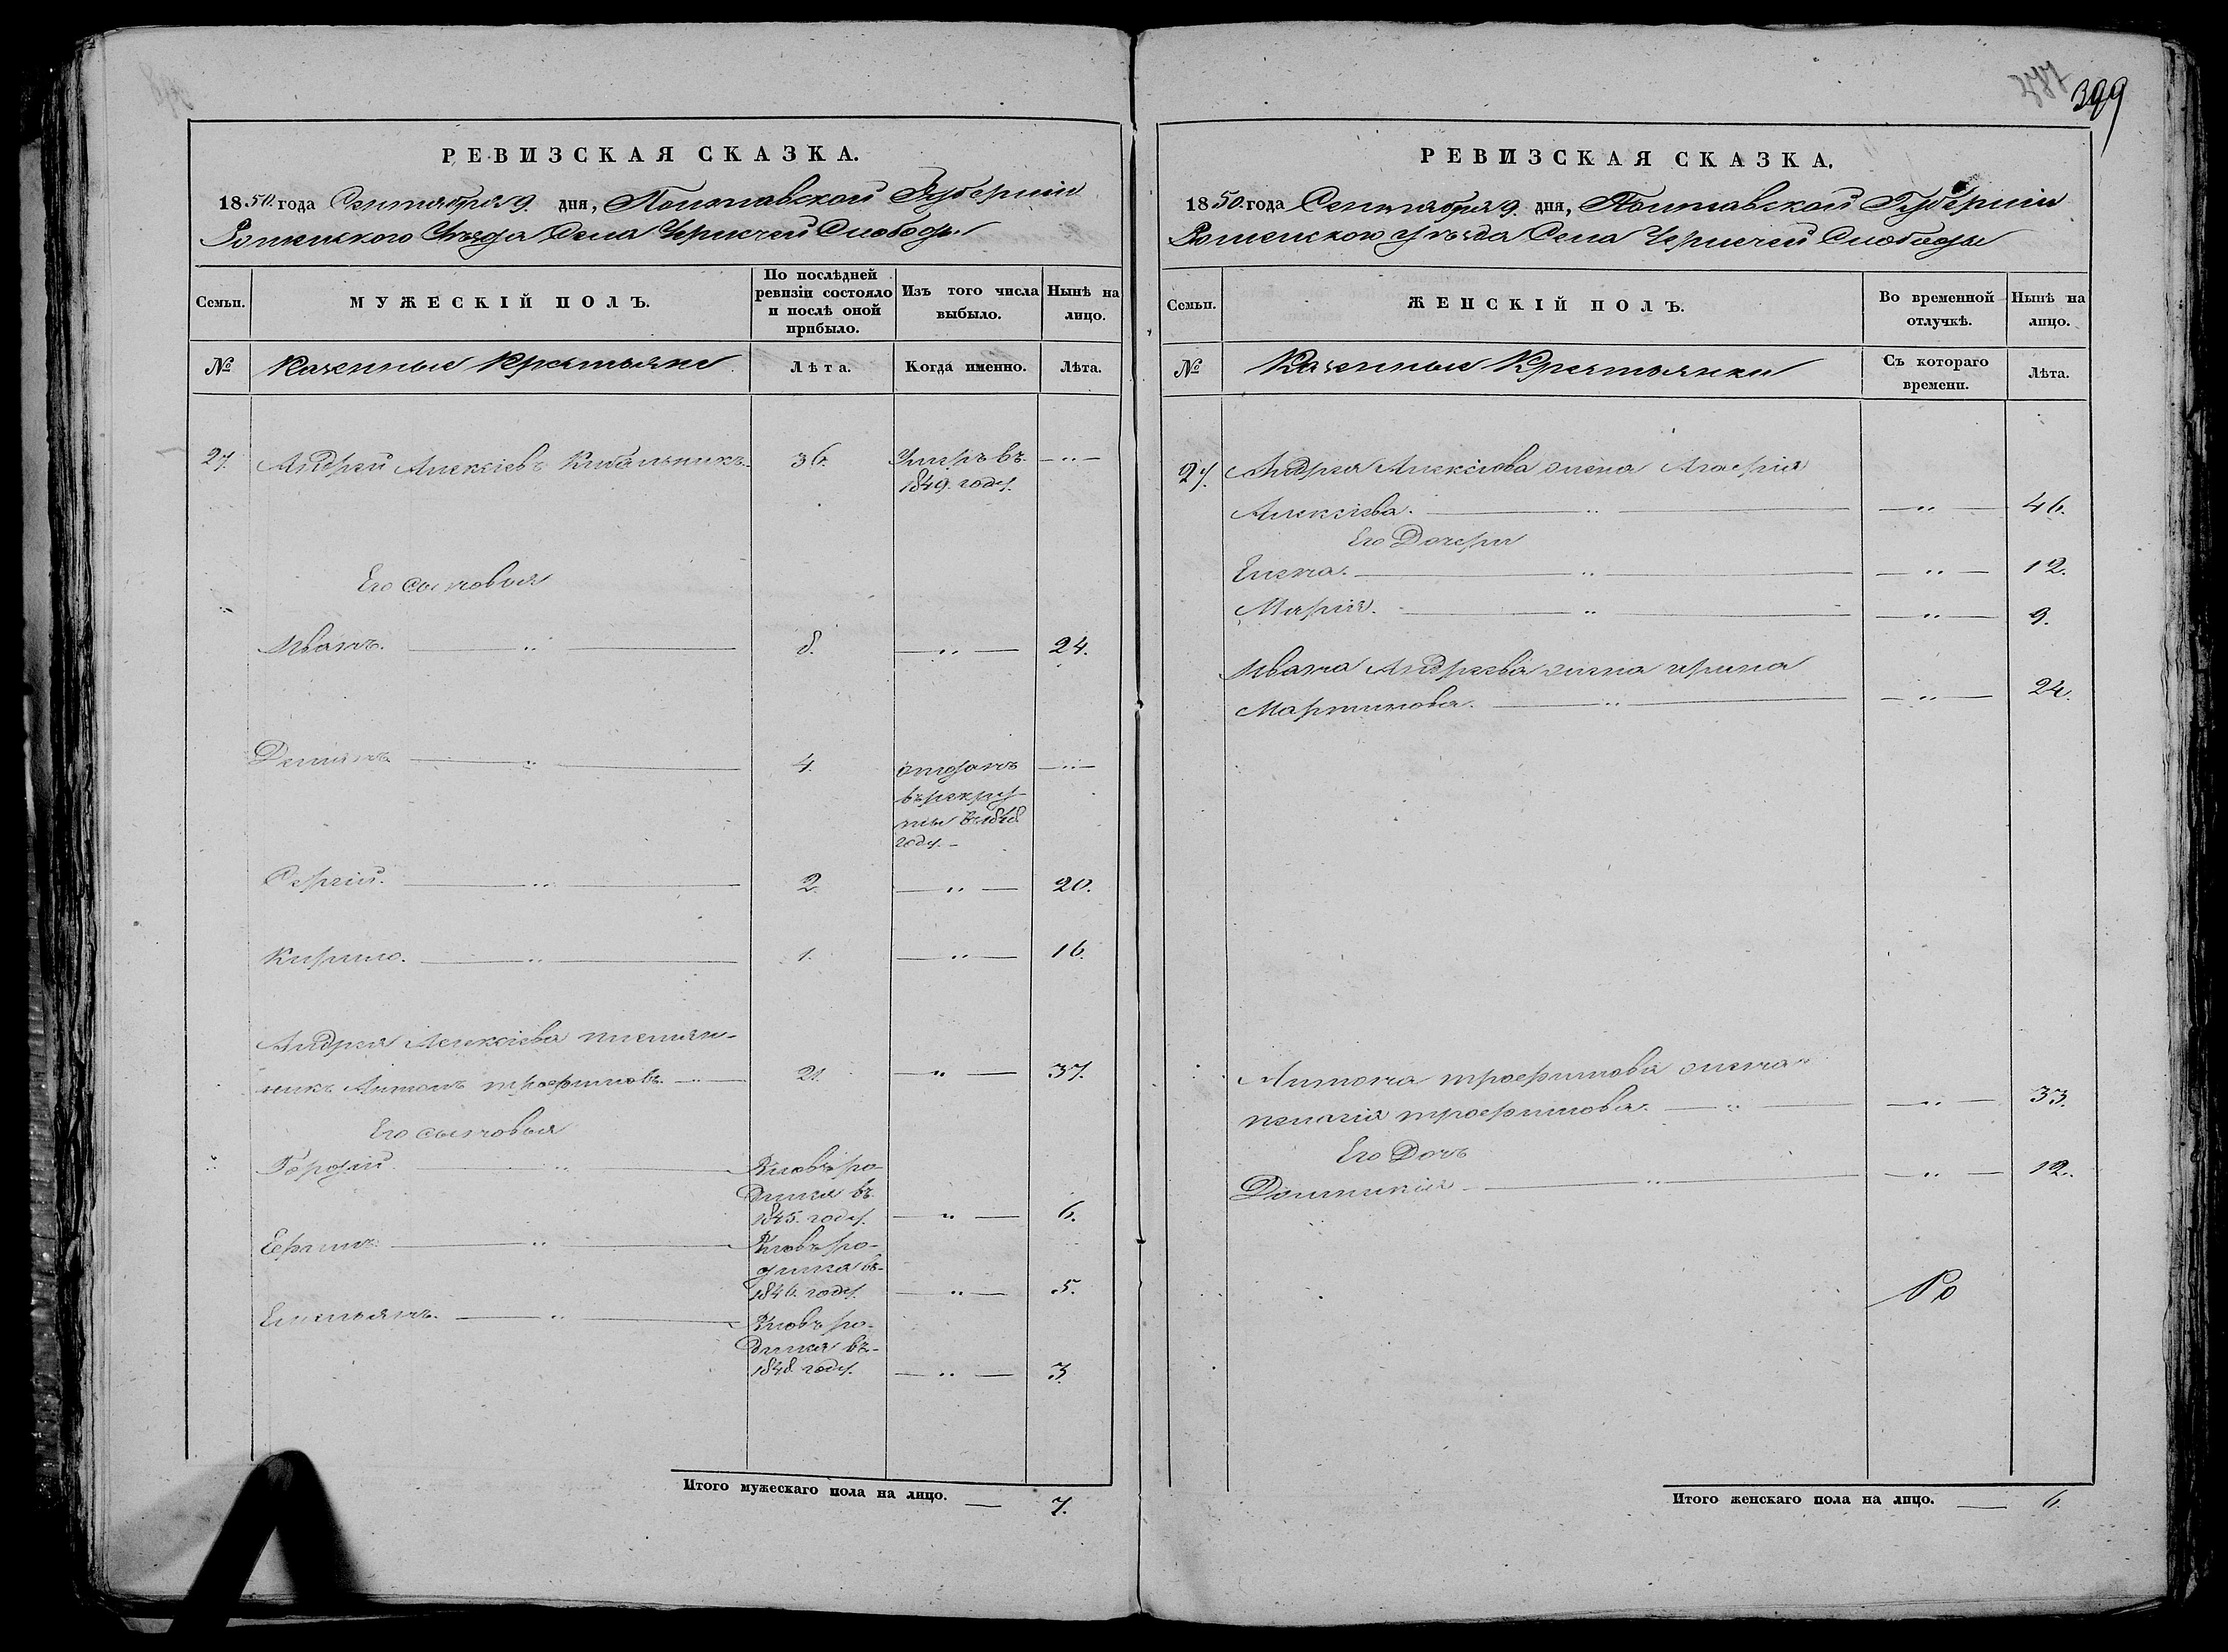 РЕВИЗСКАЯ СКАЗКА.
1850 года Сентября 9. дня, Полтавской Губернiи
Роменского Уѣзда Села Чернечей Слободы
Семьи. МУЖЕСКІЙ ПОЛЪ. По послѣдней ревизіи состояло и послѣ оной прибыло. Изъ того числа выбыло. Нынѣ на лицо.
№ Казенные Крестьяне Лѣта. Когда именно. Лѣта.
27. Андрей Алексіевъ Кибальникъ. 36. Умеръ въ
1849. году.
Его сыновья
Иванъ. 8. 24.
Демянъ 4. отданъ
въ рекру-
ты въ 1848
году.
Сергій. 2. 20.
Кирило. 1. 16.
Андрея Алексіева племян-
никъ Антонъ трофимовъ. 21. 37.
Его сыновья
Гордій Вновь ро-
дился въ
1845. году. 6.
Вновь ро-
дился въ
1846. году. 5.
Емельянъ. Вновь ро-
дился въ
1848 году. 3.
Итого мужескаго пола на лицо. 7.
399
РЕВИЗСКАЯ СКАЗКА.
1850 года Сентября 9. дня, Полтавской Губерніи
Роменского уѣзда Села Чернечей Слободы
Семьи. ЖЕНСКІЙ ПОЛЪ. Во временной отлучкѣ. Нынѣ на лицо.
№ Казенные Крестьянки Съ котораго времени. Лѣта.
27. Андрея Алексіева жена Агафія
Алексіева. 46.
Его Дочери
Елена. 12.
Марія. 9.
Ивана Андреева жена ирина
Мартинова. 24.
Антона трофимова жена
пелагія трофимова. 33.
Его Дочь
Домникія 12.
Итого женскаго пола на лицо. 6.